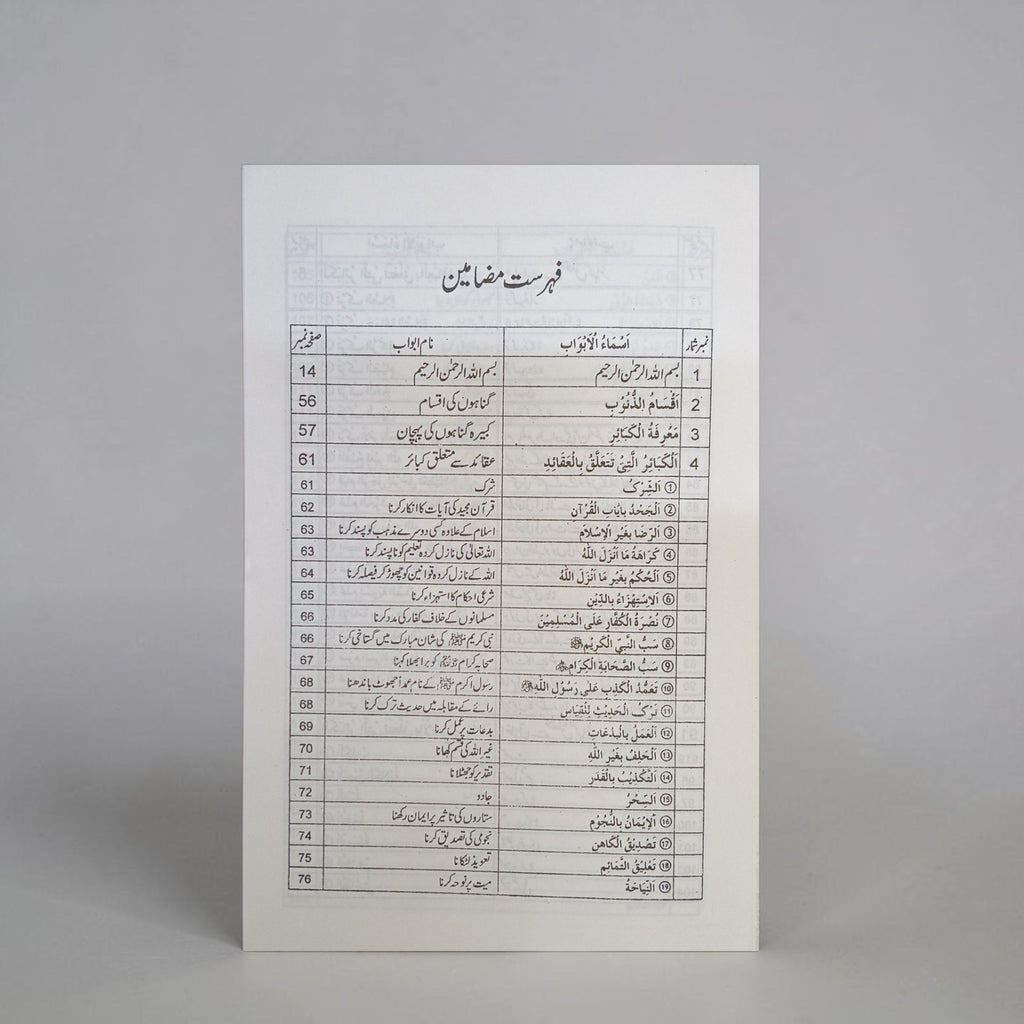 فہرست مضامین
نمبر شمار اَسْمَاءُ الْاَبْوَاب نام ابواب صفحہ نمبر
1 بسم اللہ الرحمٰن الرحیم بسم اللہ الرحمٰن الرحیم 14
2 اَقْسَامُ الذُّنُوْبِ گناہوں کی اقسام 56
3 مَعْرِفَةُ الْكَبَائِرِ کبیرہ گناہوں کی پہچان 57
4 اَلْكَبَائِرُ الَّتِيْ تَتَعَلَّقُ بِالْعَقَائِدِ عقائد سے متعلق کبائر 61
① اَلشِّرْكُ شرک 61
② اَلْجَحْدُ بِاٰيَاتِ الْقُرْآنِ قرآن مجید کی آیات کا انکار کرنا 62
③ اَلرِّضَا بِغَيْرِ الْاِسْلَام اسلام کے علاوہ کسی دوسرے مذہب کو پسند کرنا 63
④ كَرَاهَةُ مَا اَنْزَلَ اللّٰهُ اللہ تعالیٰ کی نازل کردہ تعلیم کو ناپسند کرنا 63
⑤ اَلْحُكْمُ بِغَيْرِ مَا اَنْزَلَ اللّٰهُ اللہ کے نازل کردہ قوانین کو چھوڑ کر فیصلہ کرنا 64
⑥ اَلْاِسْتِهْزَاءُ بِالدِّيْنِ شرعی احکام کا استہزاء کرنا 65
⑦ نُصْرَةُ الْكُفَّارِ عَلَى الْمُسْلِمِيْنَ مسلمانوں کے خلاف کفار کی مدد کرنا 66
⑧ سَبُّ النَّبِيِّ الْكَرِيْمِ ﷺ نبی کریم ﷺ کی شان مبارک میں گستاخی کرنا 66
⑨ سَبُّ الصَّحَابَةِ الْكِرَامِ صحابہ کرام کو برا بھلا کہنا 67
⑩ تَعَمُّدُ الْكَذِبِ عَلٰى رَسُوْلِ اللّٰهِ ﷺ رسول اکرم ﷺ کے نام عمداً جھوٹ باندھنا 68
⑪ تَرْكُ الْحَدِيْثِ لِلْقِيَاسِ رائے کے مقابلہ میں حدیث ترک کرنا 68
⑫ اَلْعَمَلُ بِالْبِدْعَاتِ بدعات پر عمل کرنا 69
⑬ اَلْحَلِفُ بِغَيْرِ اللّٰهِ غیر اللہ کی قسم کھانا 70
⑭ اَلتَّكْذِيْبُ بِالْقَدَرِ تقدیر کو جھٹلانا 71
⑮ اَلسِّحْرُ جادو 72
⑯ اَلْاِيْمَانُ بِالنُّجُوْمِ ستاروں کی تاثیر پر ایمان رکھنا 73
⑰ تَصْدِيْقُ الْكَاهِنِ نجومی کی تصدیق کرنا 74
⑱ تَعْلِيْقُ التَّمَائِمِ تعویذ لٹکانا 75
⑲ اَلنِّيَاحَةُ میت پر نوحہ کرنا 76